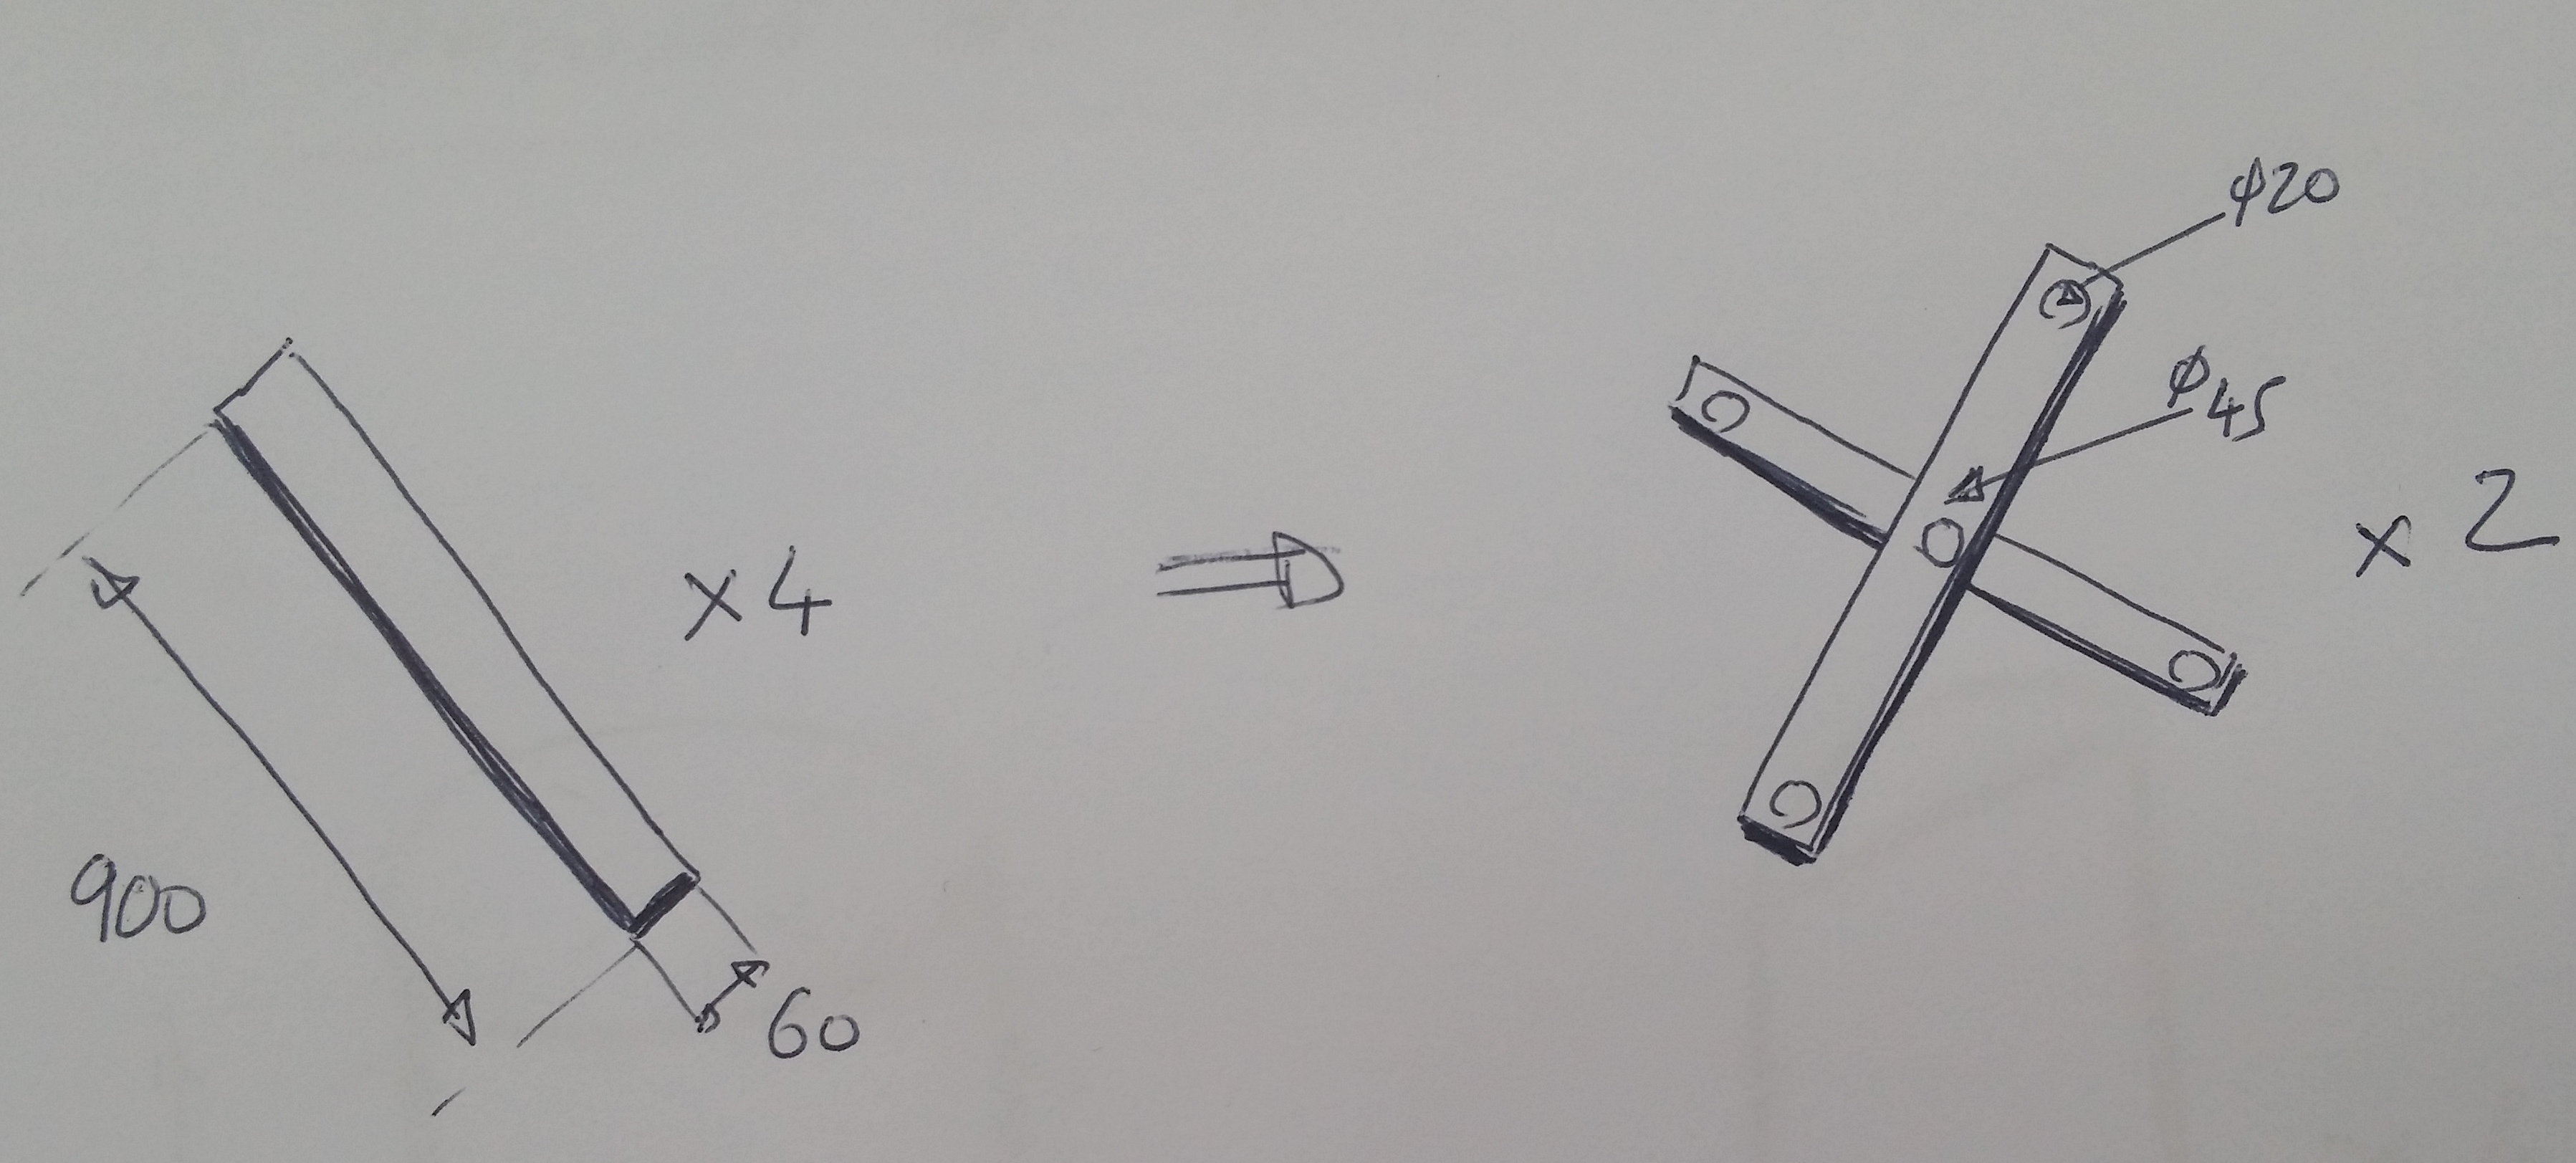 900
60
x4
φ20
φ45
x 2